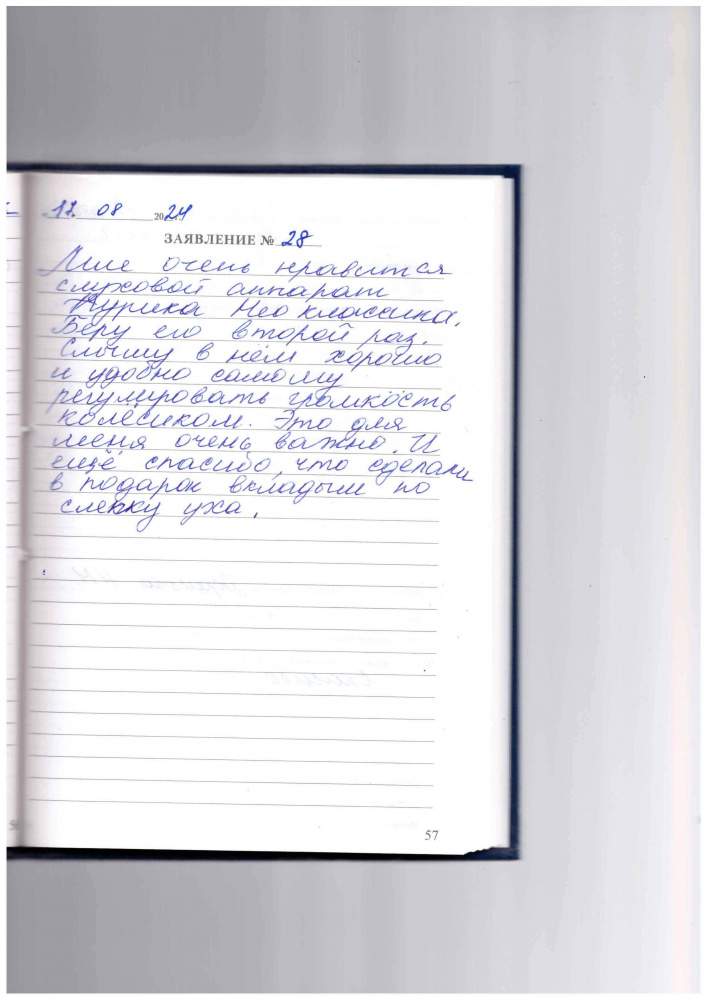 17. 08 2024 г.
ЗАЯВЛЕНИЕ № 28
Мне очень нравится
слуховой аппарат
Аурика Нео классика.
Беру его второй раз.
Слышу в нём хорошо
и удобно самому
регулировать громкость
колёсиком. Это для
меня очень важно. И
ещё спасибо, что сделали
в подарок вкладыш по
слепку уха.
57